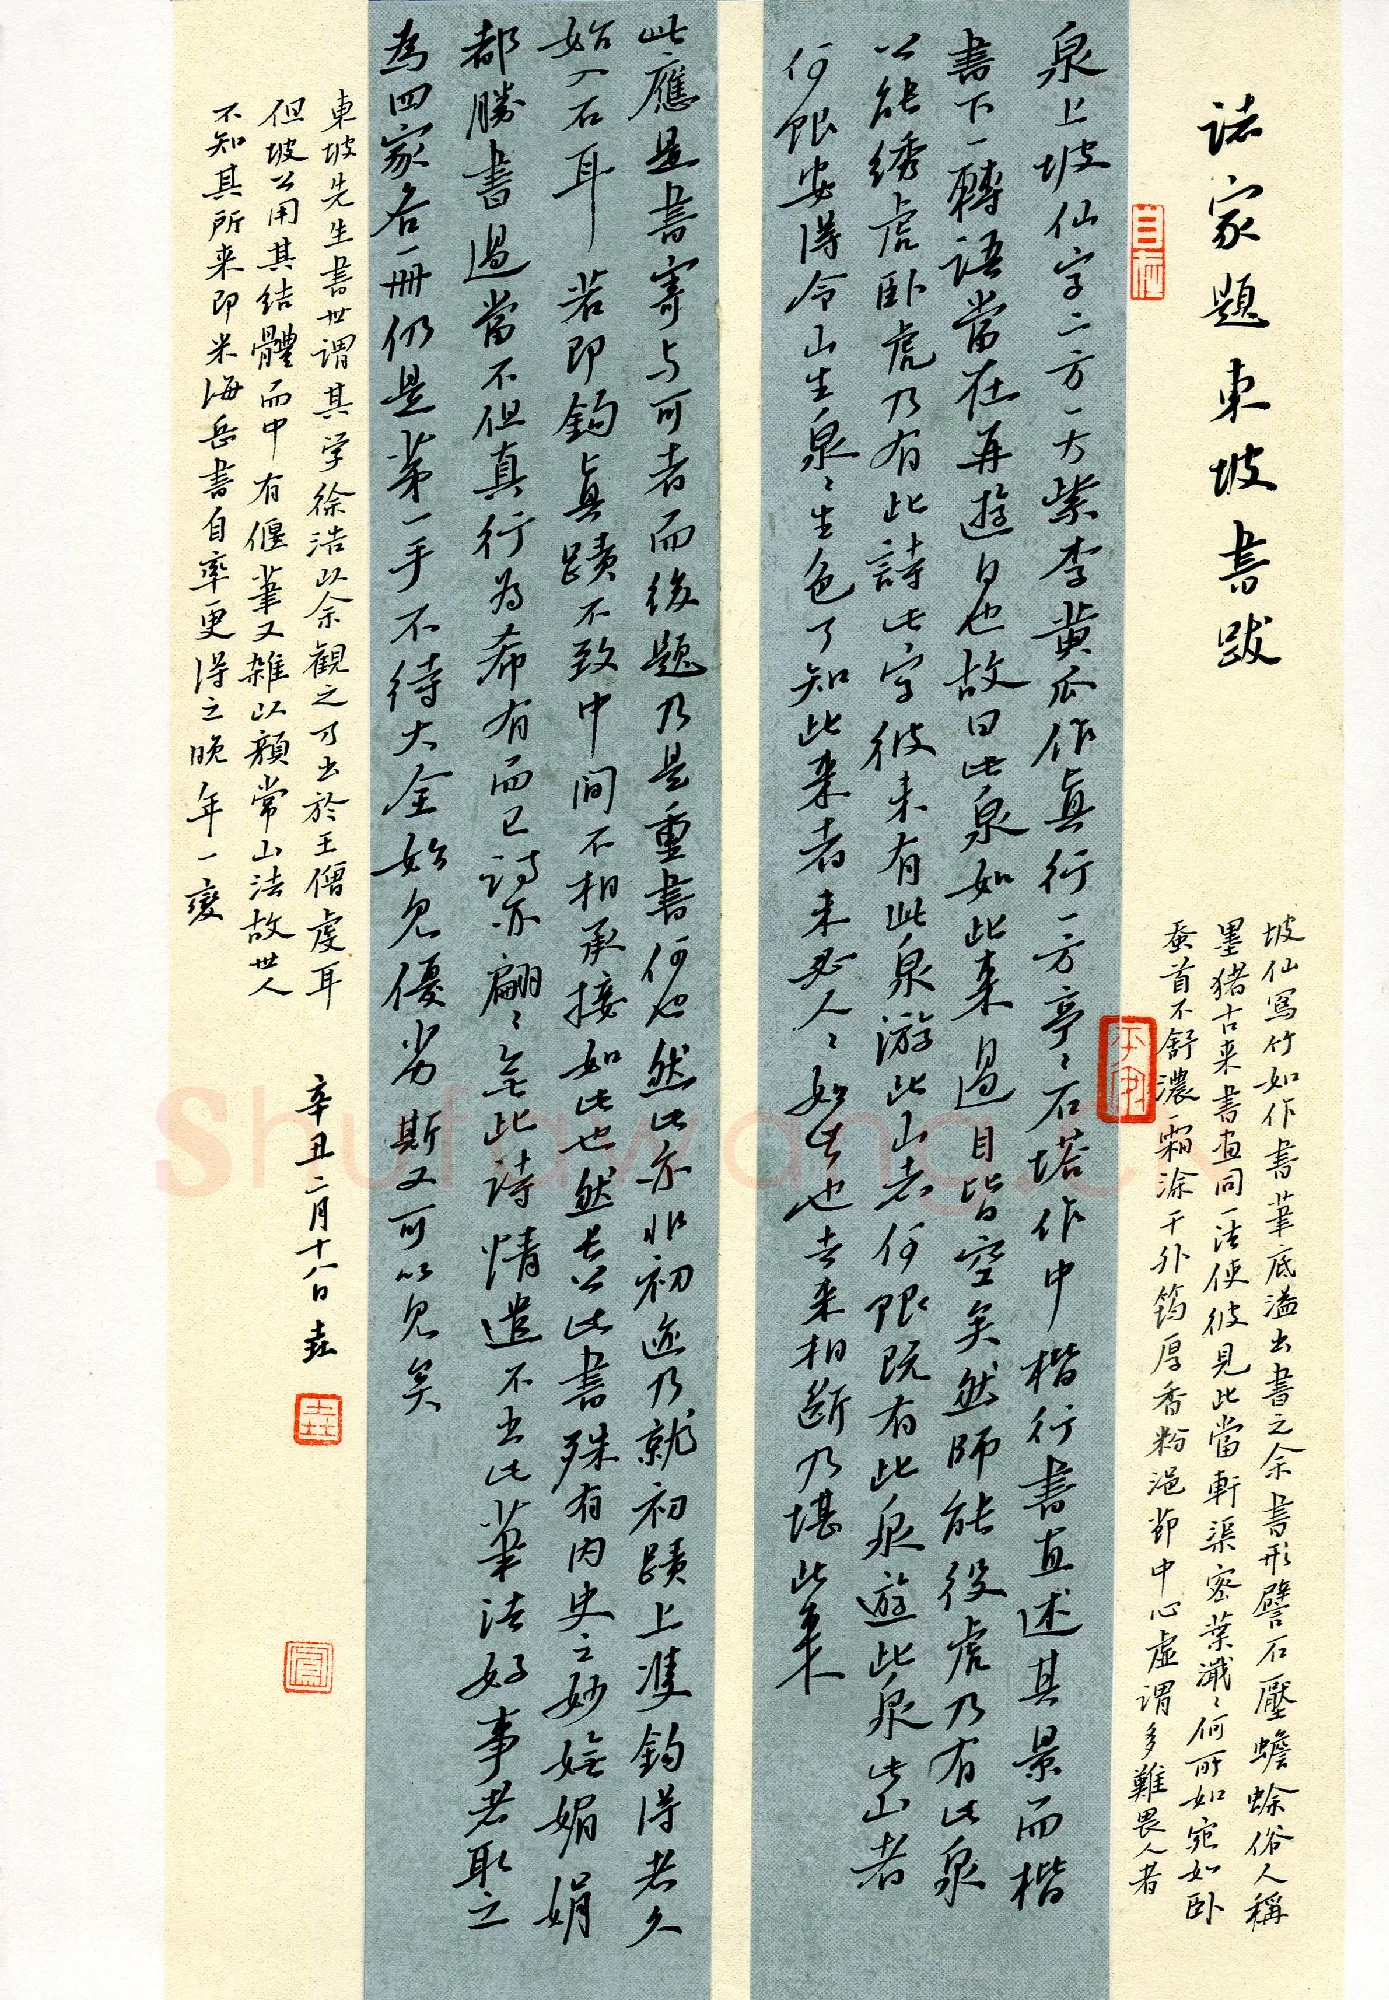 諸家題東坡書跋
坡仙寫竹如作書筆底溢出書之余書形譬石壓蟾蜍俗人稱
墨猪古来書画同一法使彼見此當軒渠密葉瀸〻何所如宛如卧
蚕首不舒濃霜涂干外筠厚香粉浥節中心虛謂多難畏人者
泉上坡仙字二方一大紫李黄瓜作真行一方亭〻石塔作中楷行書直述其景而楷
書下一轉語當在再遊日也故曰此泉如此来過目皆空矣然師能役虎乃有此泉
公能綉虎卧虎乃有此詩此字彼未有此泉游此山者何限既有此泉遊此泉此山者
何限安得令山生泉〻生色了知此来者未必人〻如此也去来相斷乃堪此来
此應是書寄与可者而後題乃是重書何也然此亦非初迹乃就初蹟上雙鈎得者久
始入石耳若即鈎真蹟不致中間不相承接如此也然長公此書殊有内史之妙嫵媚娟
都勝書過當不但真行為希有而已詩亦翩〻無此詩情遣不出此筆法好事者取之
為四家各一册仍是第一手不待大全始見優劣斯又可以見矣
東坡先生書世謂其学徐浩以余觀之乃出於王僧虔耳
但坡公用其結體而中有偃筆又雜以顔常山法故世人
不知其所来即米海岳書自率更得之晚年一變
辛丑二月十八日 垚
Shufawang.cn